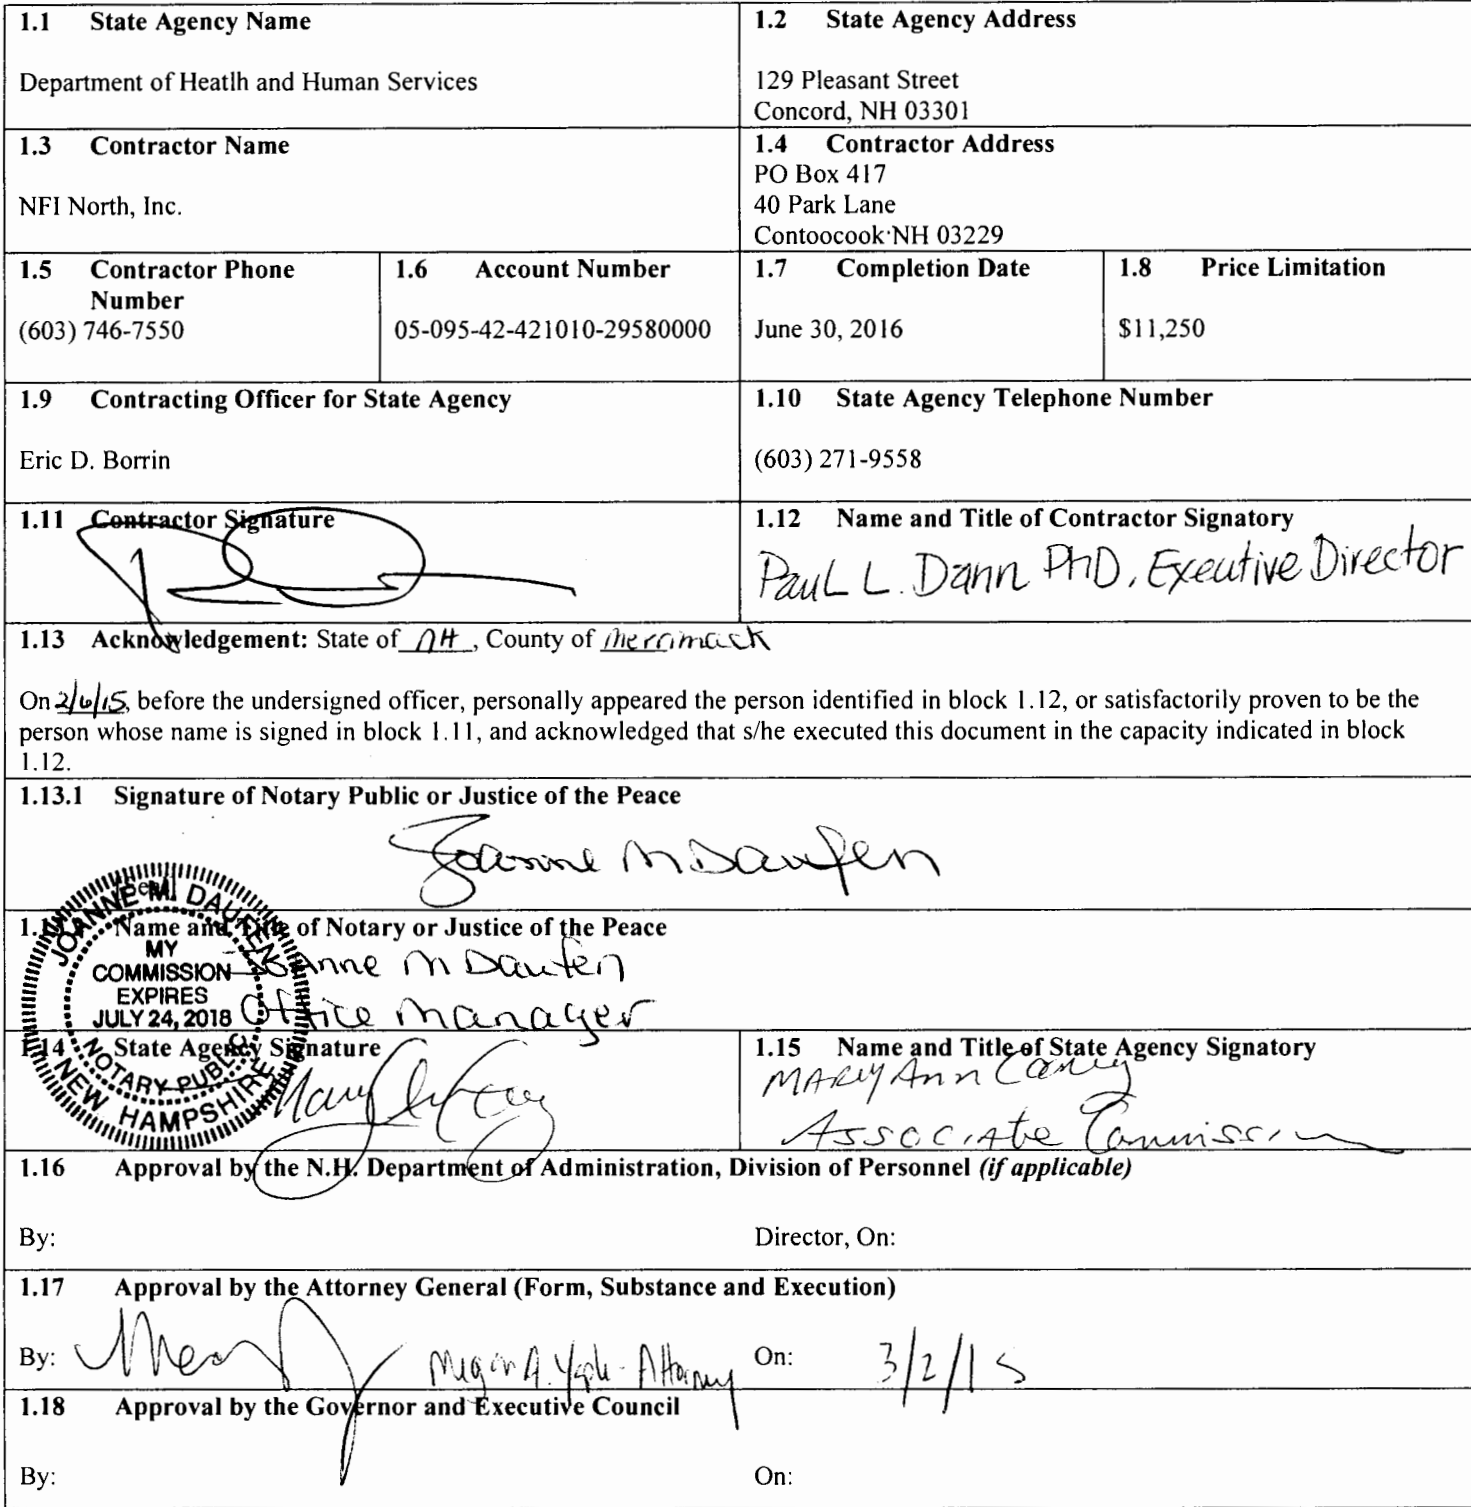 1.1 State Agency Name
Department of Heatlh and Human Services
1.2 State Agency Address
129 Pleasant Street
Concord, NH 03301
1.3 Contractor Name
NFI North, Inc.
1.4 Contractor Address
PO Box 417
40 Park Lane
Contoocook NH 03229
1.5 Contractor Phone
Number
(603) 746-7550
1.6 Account Number
05-095-42-421010-29580000
1.7 Completion Date
June 30, 2016
1.8 Price Limitation
$11,250
1.9 Contracting Officer for State Agency
Eric D. Borrin
1.10 State Agency Telephone Number
(603) 271-9558
1.11 Contractor Signature
1.12 Name and Title of Contractor Signatory
Paul L. Dann PhD, Executive Director
1.13 Acknowledgement: State of NH, County of Merrimack
On 2/6/15, before the undersigned officer, personally appeared the person identified in block 1.12, or satisfactorily proven to be the
person whose name is signed in block 1.11, and acknowledged that s/he executed this document in the capacity indicated in block
1.12.
1.13.1 Signature of Notary Public or Justice of the Peace
Joanne M Daufen
JOANNE M. DAUFEN
MY
COMMISSION
EXPIRES
JULY 24, 2018
NOTARY PUBLIC
NEW HAMPSHIRE
Name and Title of Notary or Justice of the Peace
Joanne M Daufen
Office Manager
1.14 State Agency Signature
1.15 Name and Title of State Agency Signatory
Mary Ann Cooney
Associate Commission
1.16 Approval by the N.H. Department of Administration, Division of Personnel (if applicable)
By:
Director, On:
1.17 Approval by the Attorney General (Form, Substance and Execution)
By: Megan A. Attorney
On: 3/2/15
1.18 Approval by the Governor and Executive Council
By:
On: